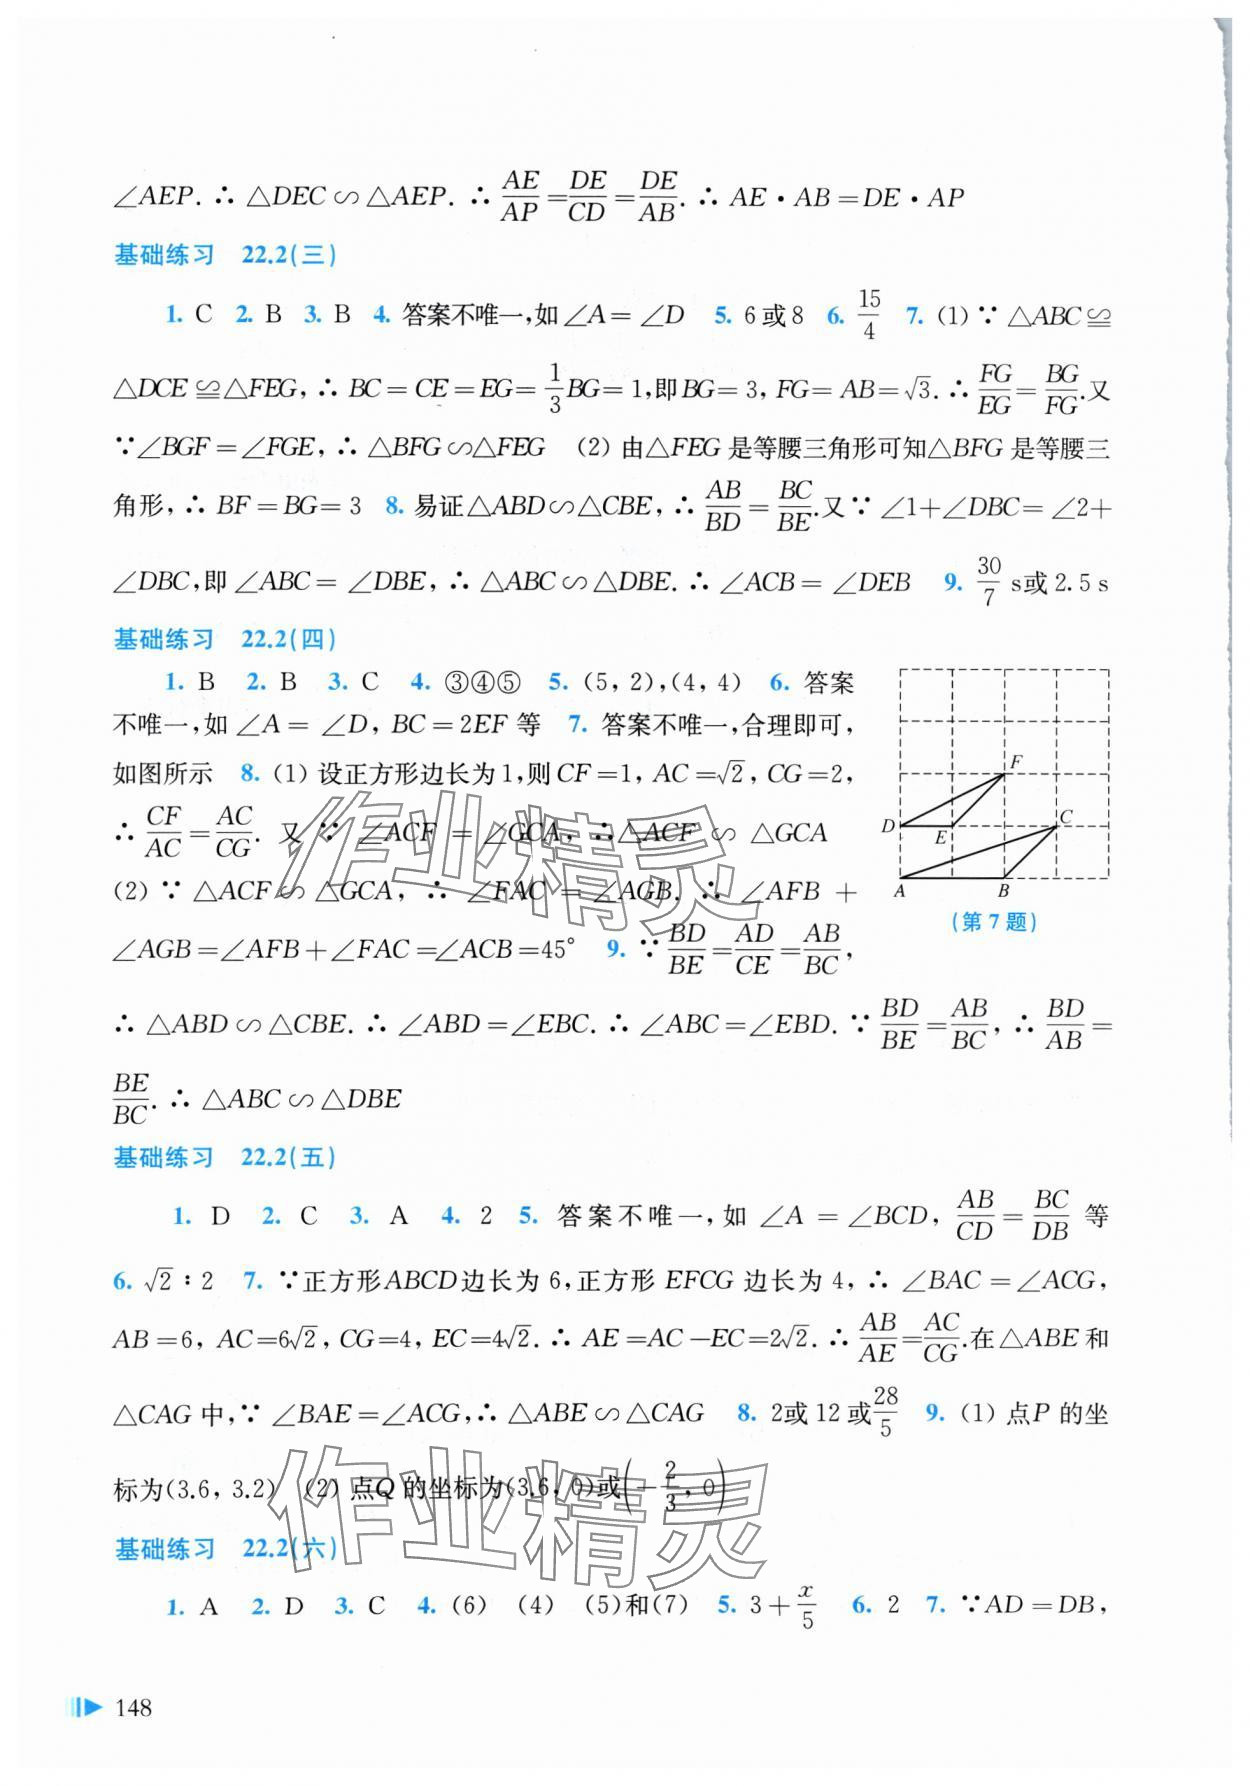 ∠AEP. ∴ △DEC∽△AEP. ∴ AE/AP=DE/CD=DE/AB. ∴ AE·AB=DE·AP
基础练习 22.2(三)
1. C 2. B 3. B 4. 答案不唯一,如∠A=∠D 5. 6或8 6. 15/4 7. (1) ∵ △ABC≌
△DCE≌△FEG, ∴ BC=CE=EG=1/3BG=1,即BG=3, FG=AB=√3. ∴ FG/EG=BG/FG.又
∵∠BGF=∠FGE, ∴ △BFG∽△FEG (2) 由△FEG是等腰三角形可知△BFG是等腰三
角形, ∴ BF=BG=3 8. 易证△ABD∽△CBE, ∴ AB/BD=BC/BE.又∵ ∠1+∠DBC=∠2+
∠DBC,即∠ABC=∠DBE, ∴ △ABC∽△DBE. ∴ ∠ACB=∠DEB 9. 30/7 s或2.5 s
基础练习 22.2(四)
1. B 2. B 3. C 4. ③④⑤ 5. (5, 2),(4, 4) 6. 答案
不唯一,如∠A=∠D, BC=2EF等 7. 答案不唯一,合理即可,
如图所示 8. (1) 设正方形边长为1,则CF=1, AC=√2, CG=2,
∴ CF/AC=AC/CG. 又∵ ∠ACF=∠GCA, ∴△ACF∽△GCA
(2) ∵ △ACF∽△GCA, ∴ ∠FAC=∠AGB. ∴ ∠AFB+
∠AGB=∠AFB+∠FAC=∠ACB=45° 9. ∵BD/BE=AD/CE=AB/BC,
F
D E C
A B
(第7题)
∴ △ABD∽△CBE. ∴ ∠ABD=∠EBC. ∴ ∠ABC=∠EBD. ∵ BD/BE=AB/BC, ∴ BD/AB=
BE/BC. ∴ △ABC∽△DBE
基础练习 22.2(五)
1. D 2. C 3. A 4. 2 5. 答案不唯一,如∠A=∠BCD, AB/CD=BC/DB等
6. √2∶2 7. ∵正方形ABCD边长为6,正方形EFCG边长为4, ∴ ∠BAC=∠ACG,
AB=6, AC=6√2, CG=4, EC=4√2. ∴ AE=AC-EC=2√2. ∴ AB/AE=AC/CG.在△ABE和
△CAG中,∵ ∠BAE=∠ACG,∴ △ABE∽△CAG 8. 2或12或28/5 9. (1) 点P的坐
标为(3.6, 3.2) (2) 点Q的坐标为(3.6, 0)或(-2/3, 0)
基础练习 22.2(六)
1. A 2. D 3. C 4. (6) (4) (5)和(7) 5. 3+x/5 6. 2 7. ∵AD=DB,
148
作业精灵
作业精灵